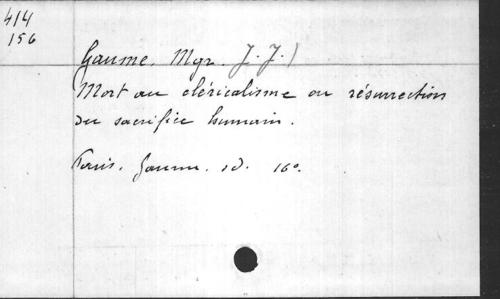 414
156
Gaume, Mgr. J. J. )
Mort au cléricalisme ou résurrection
du sacrifice humain.
Paris, Gaume. sd. 16º.